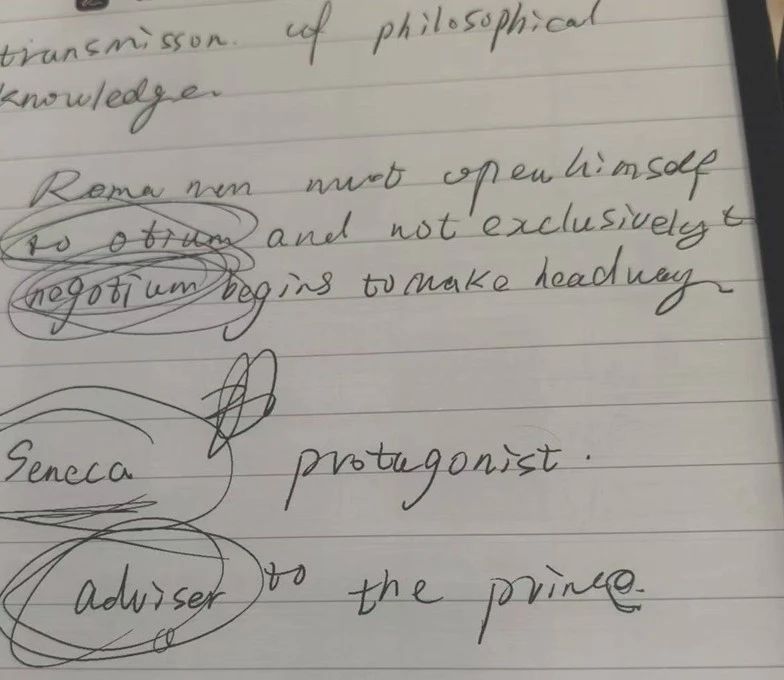 transmisson. of philosophical
knowledge.
Roma men must open himself
to otium and not exclusively t
negotium begins to make headway
Seneca protagonist.
adviser to the prince.